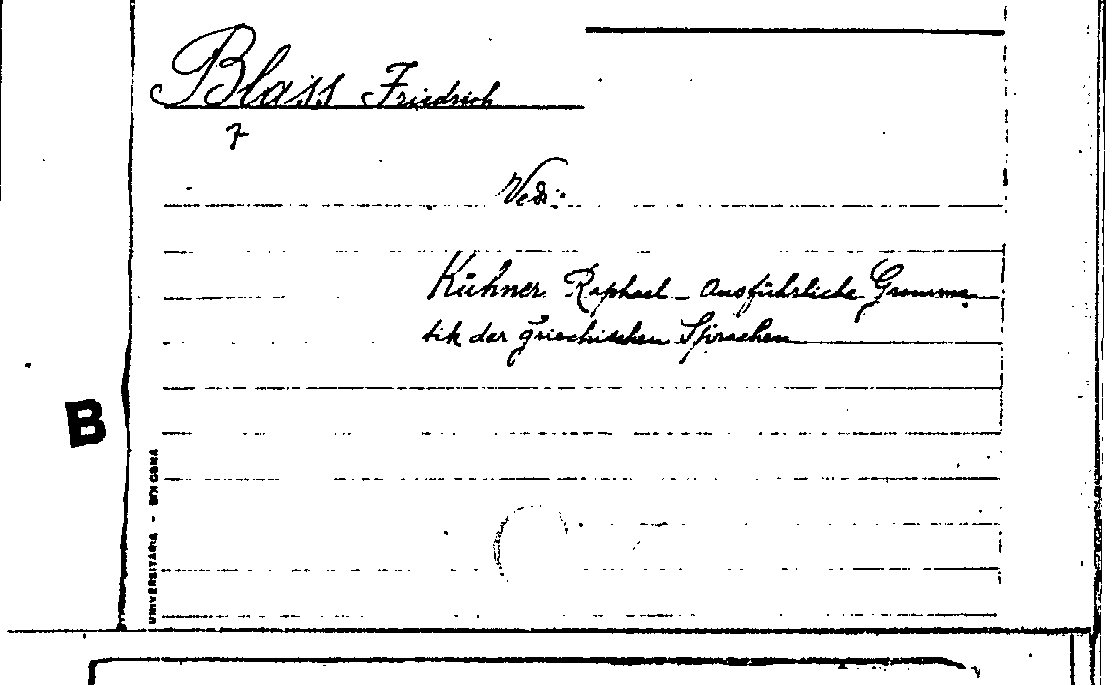 Blass Friedrich
7
Vedi:
Kühner Raphael - Ausführliche Gramma-
tik der griechischen Sprachen
B
UNIVERSITARIA - BOLOGNA